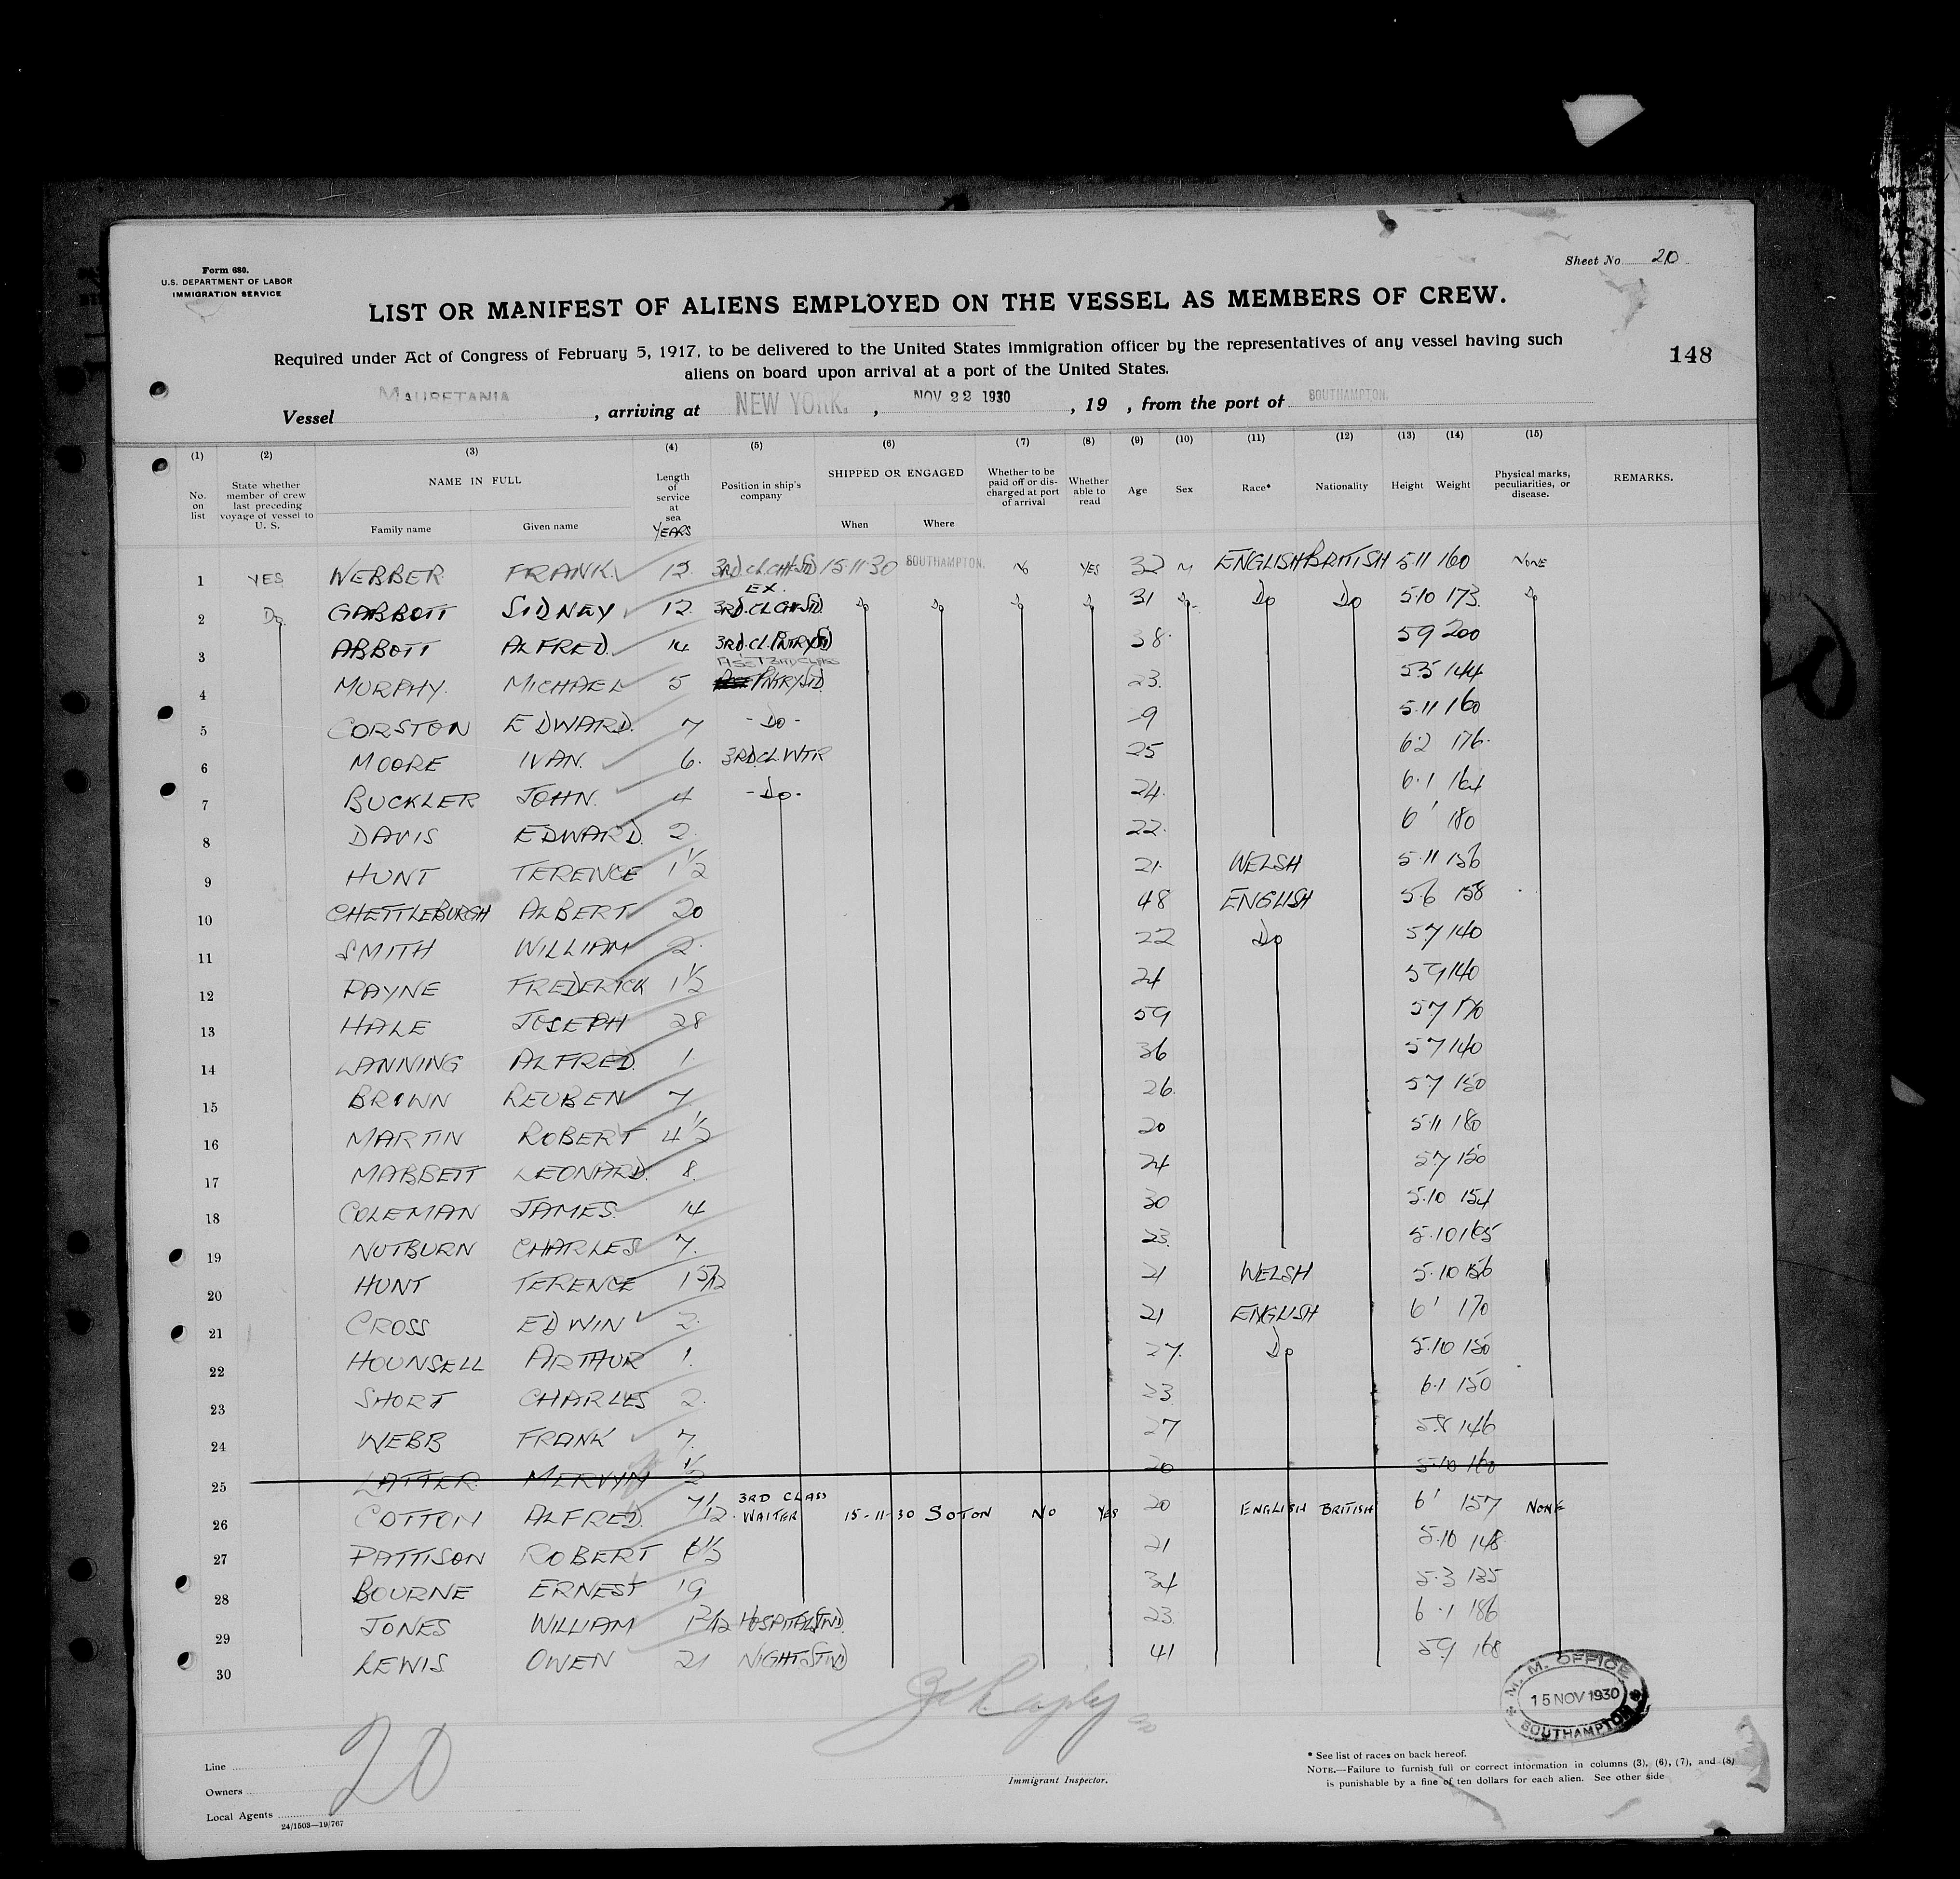 Form 680.
U.S. DEPARTMENT OF LABOR
IMMIGRATION SERVICE
Sheet No 20
LIST OR MANIFEST OF ALIENS EMPLOYED ON THE VESSEL AS MEMBERS OF CREW.
Required under Act of Congress of February 5, 1917, to be delivered to the United States immigration officer by the representatives of any vessel having such
aliens on board upon arrival at a port of the United States.
148
Vessel MAURETANIA, arriving at NEW YORK., NOV 22 1930, 19 , from the port of SOUTHAMPTON.
(1) (2) (3) (4) (5) (6) (7) (8) (9) (10) (11) (12) (13) (14) (15)
No. on list
State whether member of crew last preceding voyage of vessel to U. S.
NAME IN FULL
Family name
Given name
Length of service at sea
YEARS
Position in ship's company
SHIPPED OR ENGAGED
When
Where
Whether to be paid off or discharged at port of arrival
Whether able to read
Age
Sex
Race*
Nationality
Height
Weight
Physical marks, peculiarities, or disease.
REMARKS.
1 YES WEBBER FRANK 12 3RD.CL.CH.STD 15·11·30 SOUTHAMPTON. No YES 32 M ENGLISH BRITISH 5·11 160 NONE
2 Do GABBOTT SIDNEY 12 EX. 3RD.CL.CH.STD. Do Do Do Do 31 Do Do Do 5·10 173 Do
3 ABBOTT ALFRED 14 3RD.CL.PNTRY STD 38 5 9 200
4 MURPHY. MICHAEL 5 ASST 3RD CLASS PNTRY STD. 23. 5·5 144
5 CORSTON EDWARD. 7 - Do - 5·11 160
6 MOORE IVAN. 6. 3RD.CL.WTR 25 6·2 176.
7 BUCKLER JOHN. 4 - Do - 24. 6·1 164
8 DAVIS EDWARD. 2. 22. 6' 180
9 HUNT TERENCE 1 1/2 21. WELSH 5·11 156
10 CHETTLEBURGH ALBERT 20 48 ENGLISH 5·6 158
11 SMITH WILLIAM 2. 22 Do 5·7 140
12 PAYNE FREDERICK 1 1/2 24 5 9 140
13 HALE JOSEPH 28 59 5·7 170
14 LANNING ALFRED. 1 36 5·7 140
15 BROWN REUBEN 7 26. 5·7 150
16 MARTIN ROBERT 4 1/2 20 5·11 180
17 MABBETT LEONARD. 8. 24 5·7 150
18 COLEMAN JAMES. 14 30 5·10 154
19 NUTBURN CHARLES 7. 23. 5·10 165
20 HUNT TERENCE 1 5/12 21 WELSH 5·10 156
21 CROSS EDWIN 2. 21 ENGLISH 6' 170
22 HOUNSELL ARTHUR 1. 27. Do 5·10 150
23 SHORT CHARLES 2. 23 6·1 150
24 WEBB FRANK 7. 27 5·8 146
25 LATTER MERVYN 1/2 20 5·10 160
26 COTTON ALFRED. 7/12 3RD CLASS WAITER 15-11-30 SOTON NO YES 20 ENGLISH BRITISH 6' 157 NONE
27 PATTISON ROBERT 21 5·10 148
28 BOURNE ERNEST 19 34 5·3 135
29 JONES WILLIAM HOSPITAL STWD. 23. 6·1 186
30 LEWIS OWEN 21 NIGHT STWD 41 5·9 168
M. M. OFFICE
15 NOV 1930
SOUTHAMPTON
20
Line
Owners
Local Agents
24/1503—19/767
Immigrant Inspector.
* See list of races on back hereof.
NOTE.—Failure to furnish full or correct information in columns (3), (6), (7), and (8)
is punishable by a fine of ten dollars for each alien. See other side